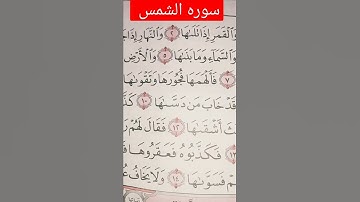 سوره الشمس
وَالْقَمَرِ إِذَا تَلَىٰهَا ٢ وَالنَّهَارِ إِذَا
وَالسَّمَاءِ وَمَا بَنَىٰهَا ٥ وَالْأَرْضِ
٧ فَأَلْهَمَهَا فُجُورَهَا وَتَقْوَىٰهَا
قَدْ خَابَ مَن دَسَّىٰهَا ١٠ كَذَّ
أَشْقَىٰهَا ١٢ فَقَالَ لَهُمْ
١٣ فَكَذَّبُوهُ فَعَقَرُوهَا فَ
فَسَوَّىٰهَا ١٤ وَلَا يَخَافُ عُ